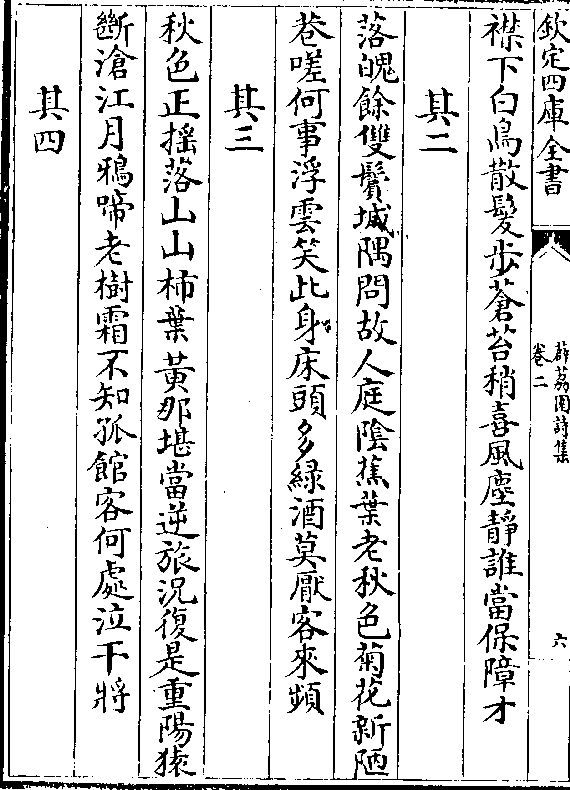 欽定四庫全書
薜荔園詩集
卷二
六
襟下白鳥散髮步蒼苔稍喜風塵靜誰當保障才
其二
落魄餘雙鬢城隅問故人庭陰蕉葉老秋色菊花新陋
巷嗟何事浮雲笑此身床頭多緑酒莫厭客來頻
其三
秋色正摇落山山柿葉黄那堪當逆旅況復是重陽猿
斷滄江月鴉啼老樹霜不知孤館客何處泣干將
其四